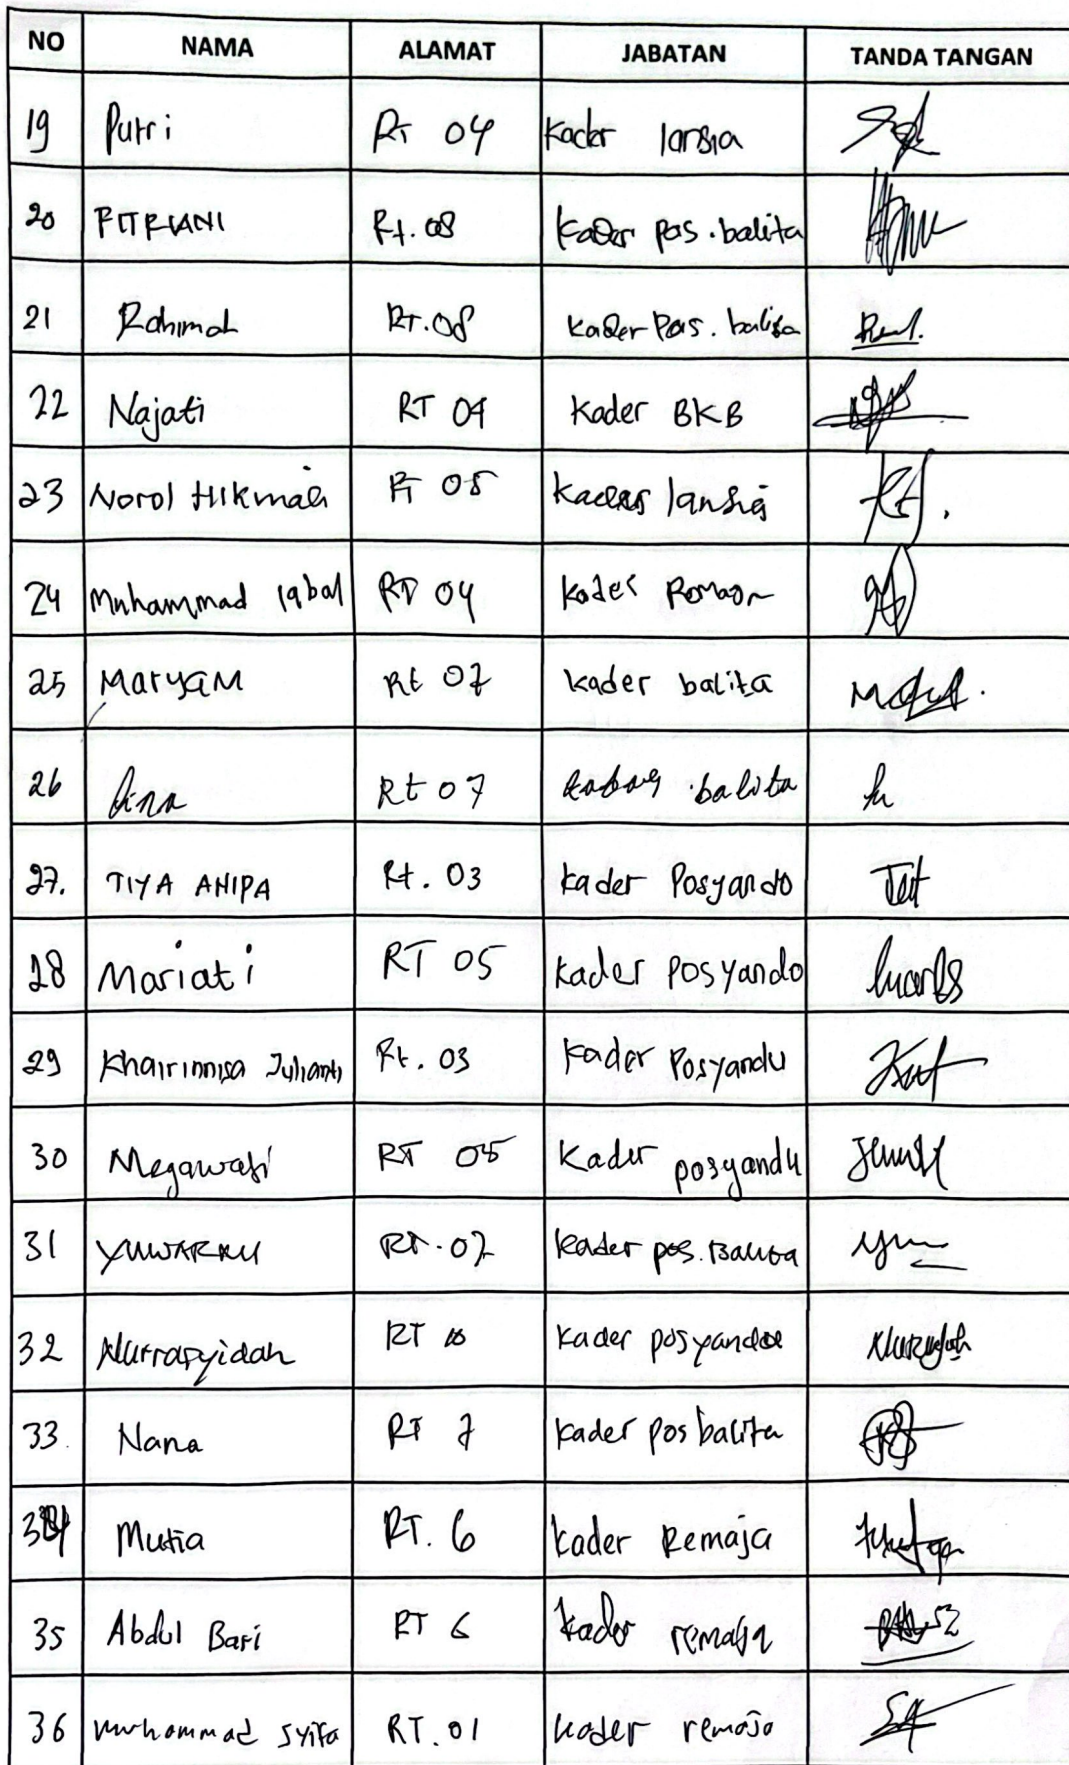 NO NAMA ALAMAT JABATAN TANDA TANGAN
19 Putri RT 04 Kader lansia
20 FITRIANI Rt. 08 Kader pos. balita
21 Rahimah RT. 08 Kader Pos. balita
22 Najati RT 04 Kader BKB
23 Norol Hikmah RT 05 Kader lansia
24 Muhammad Iqbal RT 04 Kader Remaja
25 Maryam Rt 07 kader balita
26 Rt 07 balita
27. TIYA ANIPA Rt. 03 kader Posyando
28 Mariati RT 05 kader posyando
29 Khairinnisa Julianti Rt. 03 Kader Posyandu
30 Megawati RT 05 Kader posyandu
31 RT. 07 Kader pos. Balita
32 Nurrasyidah RT Kader posyandu
33. Nana RT 7 kader pos balita
34 Mutia RT. 6 kader Remaja
35 Abdul Bari RT 6 kader remaja
36 Muhammad Syifa RT. 01 kader remaja